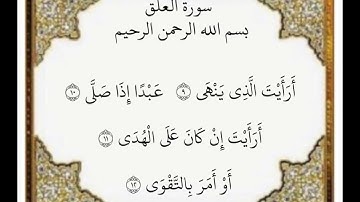 سورة العلق
بسم الله الرحمن الرحيم
أَرَأَيْتَ الَّذِي يَنْهَى ۝٩ عَبْدًا إِذَا صَلَّى ۝١٠
أَرَأَيْتَ إِنْ كَانَ عَلَى الْهُدَى ۝١١
أَوْ أَمَرَ بِالتَّقْوَى ۝١٢